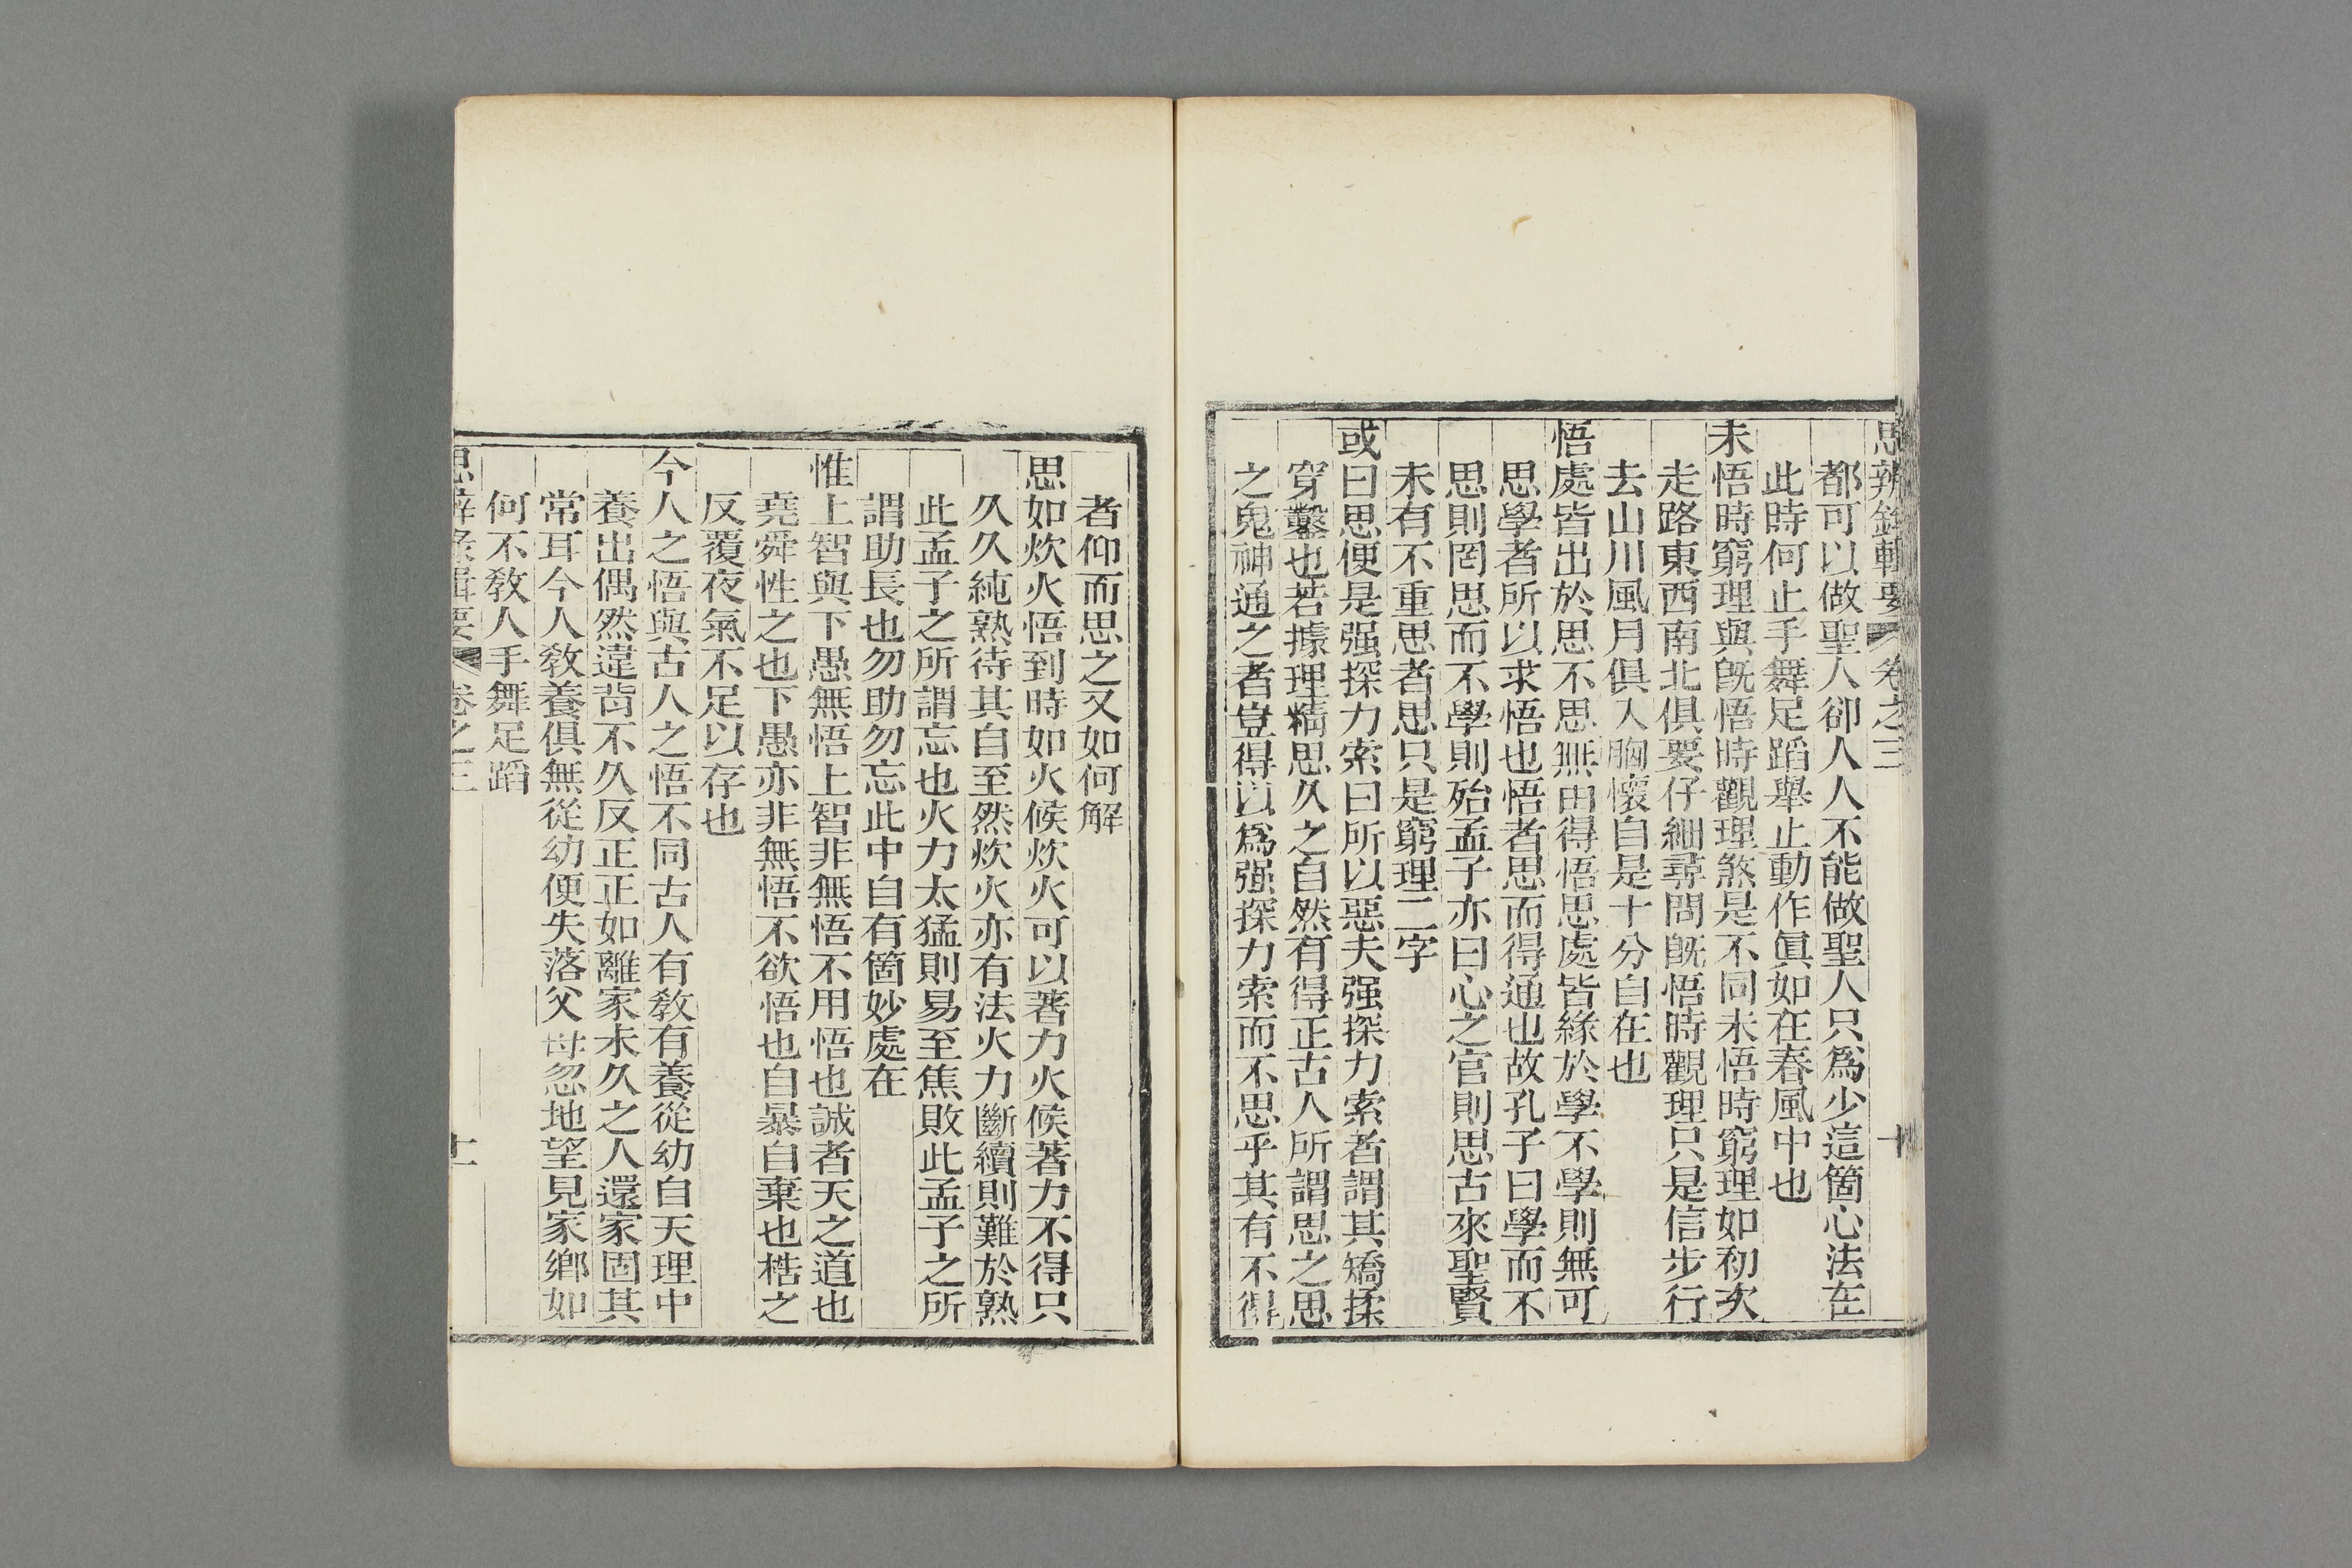 思辨錄輯要 卷之三 十
都可以做聖人卻人人不能做聖人只爲少這箇心法在
此時何止手舞足蹈舉止動作眞如在春風中也
未悟時窮理與旣悟時觀理煞是不同未悟時窮理如初次
走路東西南北俱要仔細尋問旣悟時觀理只是信步行
去山川風月俱入胸懷自是十分自在也
悟處皆出於思不思無由得悟思處皆緣於學不學則無可
思學者所以求悟也悟者思而得通也故孔子曰學而不
思則罔思而不學則殆孟子亦曰心之官則思古來聖賢
未有不重思者思只是窮理二字
或曰思便是强探力索曰所以惡夫强探力索者謂其矯揉
穿鑿也若據理精思久之自然有得正古人所謂思之思
之鬼神通之者豈得以爲强探力索而不思乎其有不得
者仰而思之又如何解
思如炊火悟到時如火候炊火可以著力火候著力不得只
久久純熟待其自至然炊火亦有法火力斷續則難於熟
此孟子之所謂忘也火力太猛則易至焦敗此孟子之所
謂助長也勿助勿忘此中自有箇妙處在
惟上智與下愚無悟上智非無悟不用悟也誠者天之道也
堯舜性之也下愚亦非無悟不欲悟也自暴自棄也梏之
反覆夜氣不足以存也
今人之悟與古人之悟不同古人有敎有養從幼自天理中
養出偶然違背不久反正正如離家未久之人還家固其
常耳今人敎養俱無從幼便失落父母忽地望見家鄉如
何不敎人手舞足蹈
思辨錄輯要 卷之三 十一